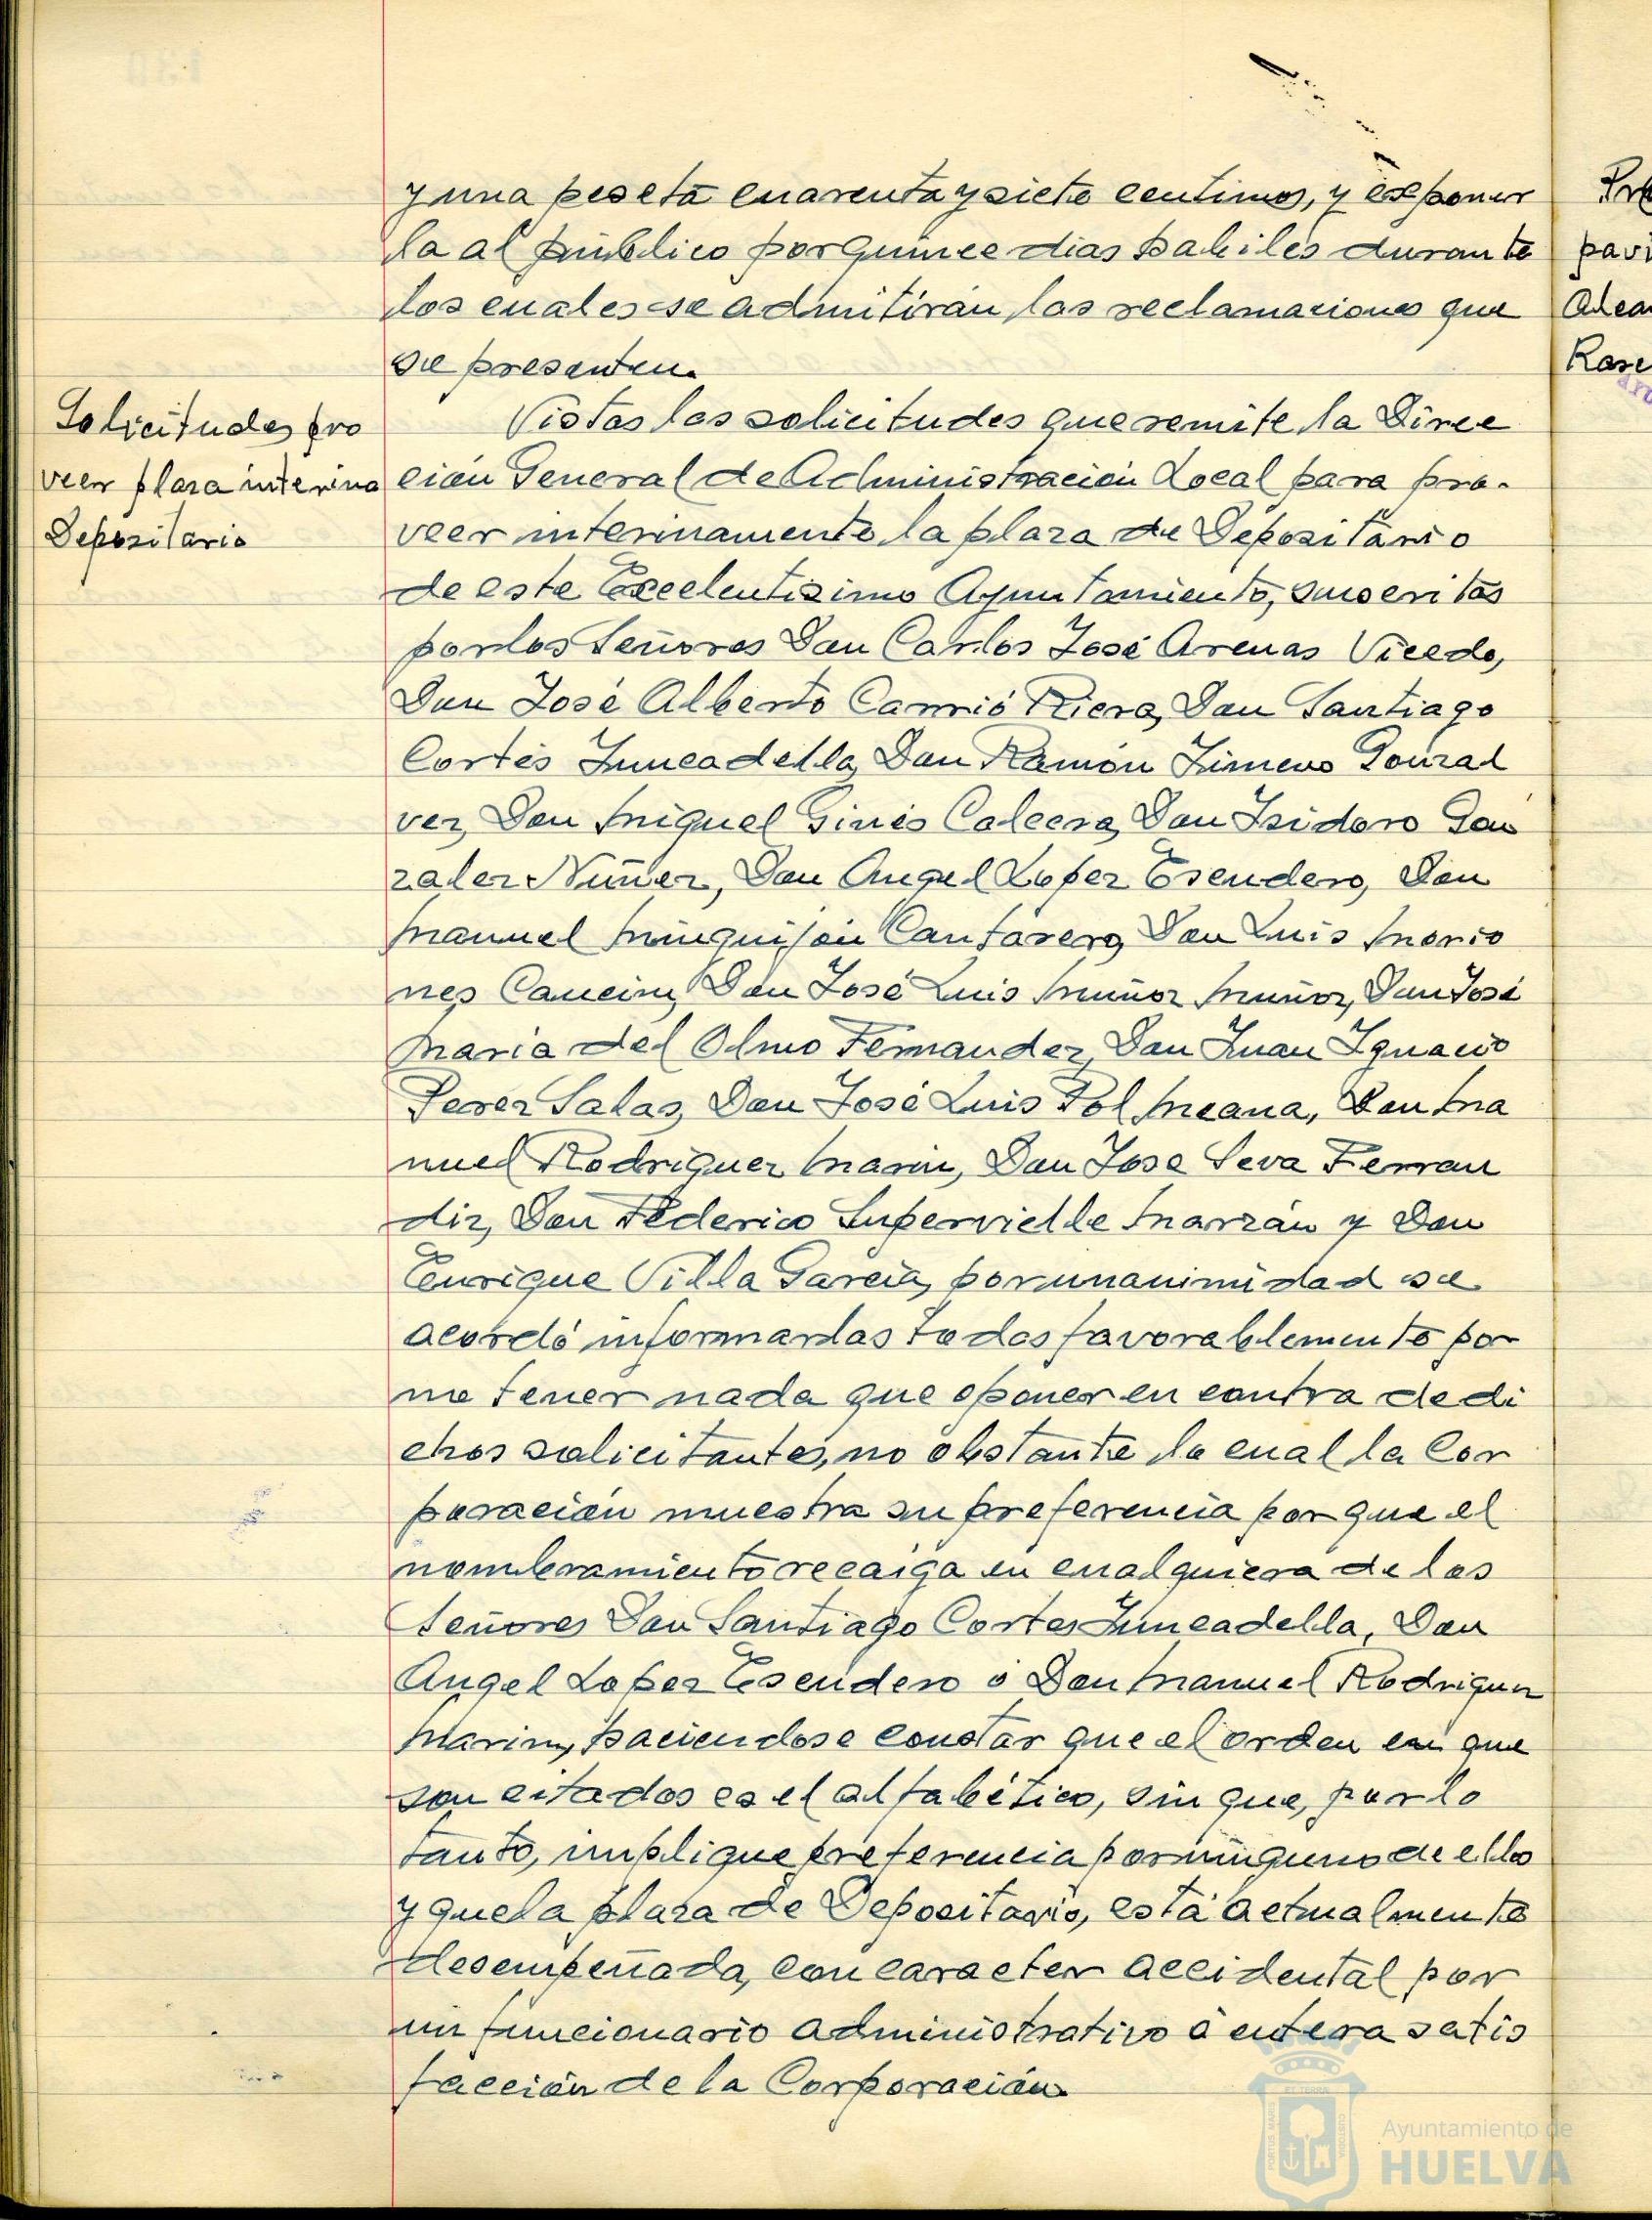 y una peseta cuarenta y siete centimos, y exponer
la al público por quince dias habiles durante
los cuales se admitirán las reclamaciones que
se presenten.
Solicitudes pro
veer plaza interina
Depositario
Vistas las solicitudes que remite la Direc
ción General de Administración Local para pro-
veer interinamente la plaza de Depositario
de este Excelentisimo Ayuntamiento, suscritas
por los Señores Don Carlos José Arenas Vicedo,
Don José Alberto Carrió Riera, Don Santiago
Cortés Juncadella, Don Ramón Jimeno Gonzal
vez, Don Miguel Ginés Calcera, Don Isidoro Gon
zalez Nuñez, Don Angel Lopez Escudero, Don
Manuel Minguijón Cantarero, Don Luis Morio
nes Cancins, Don José Luis Muñoz Muñoz, Don José
Maria del Olmo Fernandez, Don Juan Ignacio
Perez Salas, Don José Luis Pol Meana, Don Ma
nuel Rodriguez Marin, Don Jose Seva Ferran
diz, Don Federico Supervielle Marzán y Don
Enrique Villa Garcia, por unanimidad se
acordó informarlas todas favorablemente por
no tener nada que oponer en contra de di
chos solicitantes, no obstante lo cual la Cor
poración muestra su preferencia por que el
nombramiento recaiga en cualquiera de los
Señores Don Santiago Cortes Juncadella, Don
Angel Lopez Escudero ó Don Manuel Rodriguez
Marin, haciendose constar que el orden en que
son citados es el alfabético, sin que, por lo
tanto, implique preferencia por ninguno de ellos
y que la plaza de Depositario, está actualmente
desempeñada, con caracter accidental por
un funcionario administrativo á entera satis
facción de la Corporación.
Pre
pavi
Alca
Rasc
Ayuntamiento de
HUELVA